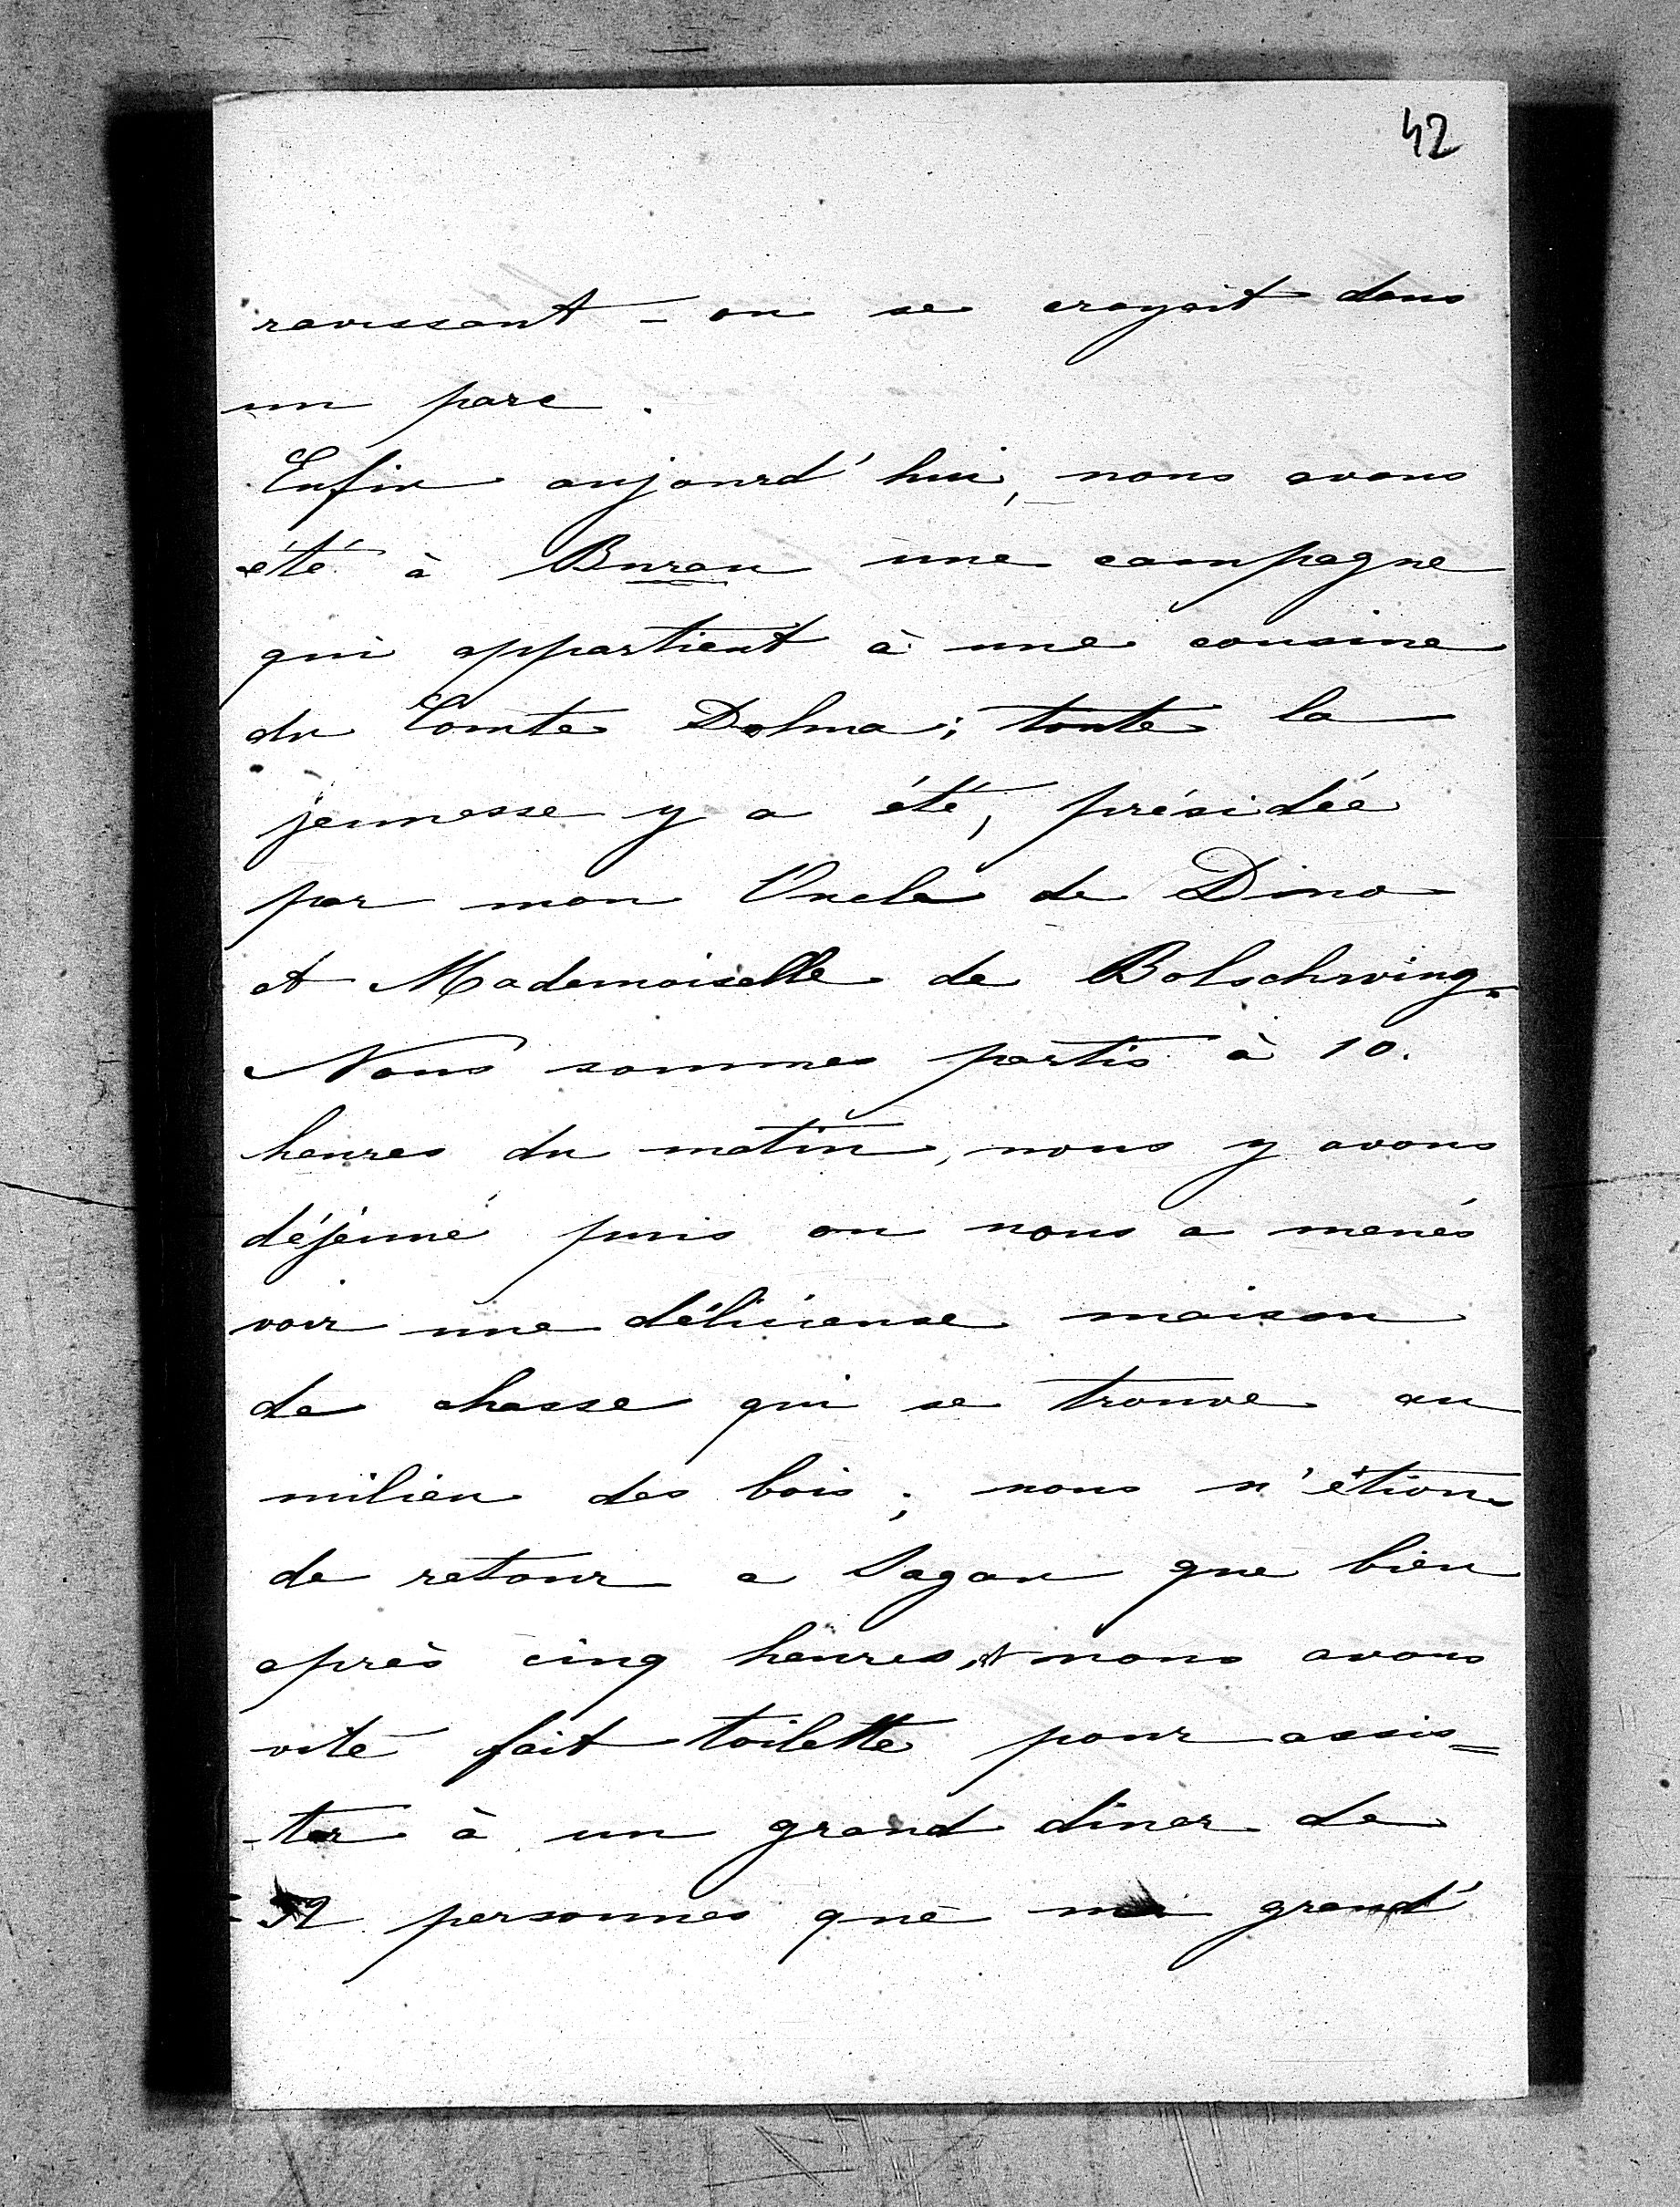 42
ravissant - on se croyait dans
un parc.
Enfin aujourd'hui, nous avons
été à Burau une campagne
qui appartient à une cousine
du Comte Dohna; toute la
jeunesse y a été, présidée
par mon Oncle de Dino
et Mademoiselle de Bolschwing.
Nous sommes partis à 10.
heures du matin, nous y avons
déjeuné puis on nous a menés
voir une délicieuse maison
de chasse qui se trouve au
milieu des bois; nous n'étions
de retour a Sagan que bien
après cinq heures, et nous avons
vite fait toilette pour assis=
-ter à un grand diner de
32 personnes que ma grand'